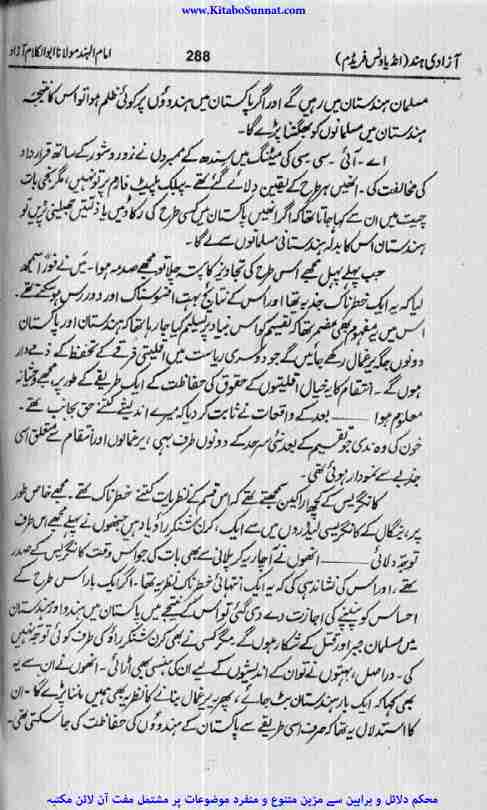 www.KitaboSunnat.com
آزادی ہند (انڈیا ونس فریڈم)
288
امام الہند مولانا ابوالکلام آزاد
مسلمان ہندستان میں رہیں گے اور اگر پاکستان میں ہندوؤں پر کوئی ظلم ہوا تو اس کا نتیجہ
ہندستان میں مسلمانوں کو بھگتنا پڑے گا۔
اے۔ آئی۔ سی۔ سی کی میٹنگ میں سندھ کے ممبر دل نے زور و شور کے ساتھ قرارداد
کی مخالفت کی۔ انھیں ہر طرح کے یقین دلائے گئے تھے۔ پبلک پلیٹ فارم پر تو نہیں، مگر نجی بات
چیت میں ان سے کہا جاتا تھا کہ اگر انھیں پاکستان میں کسی طرح کی رکاوٹیں یا ذلتیں جھیلنی پڑیں تو
ہندستان اس کا بدلہ ہندستانی مسلمانوں سے لے گا۔
جب پہلے پہل مجھے اسی طرح کی تجاویز کا پتہ چلا تو مجھے صدمہ ہوا۔ میں نے فوراً سمجھ
لیا کہ یہ ایک خطرناک جذبہ تھا اور اس کے نتائج بہت افسوسناک اور دوررس ہو سکتے تھے۔
اس میں یہ مفہوم بھی مضمر تھا کہ تقسیم کو اس بنیاد پر تسلیم کیا جا رہا تھا کہ ہندستان اور پاکستان
دونوں جگہ یرغمال رکھے جائیں گے جو دوسری ریاست میں اقلیتی فرقے کے تحفظ کے ذمے دار
ہوں گے۔ انتقام کا یہ خیال اقلیتوں کے حقوق کی حفاظت کے ایک طریقے کے طور پر مجھے وحشیانہ
معلوم ہوا ـــــ بعد کے واقعات نے ثابت کر دیا کہ میرے اندیشے کتنے حق بجانب تھے۔
خون کی وہ ندی جو تقسیم کے بعد نئی سرحد کے دونوں طرف بہی، یرغمالوں اور انتقام سے متعلق اسی
جذبے سے نمودار ہوئی تھی۔
کانگریس کے کچھ اراکین سمجھتے تھے کہ اس قسم کے نظریات کتنے خطرناک تھے۔ مجھے خاص طور
پر، بنگال کے کانگریسی لیڈروں میں سے ایک، کرن شنکر راؤ یاد ہیں جنھوں نے پہلے مجھے اس طرف
توجہ دلائی ـــــ انھوں نے آچاریہ کرپلانی سے بھی بات کی جو اس وقت کانگریس کے صدر
تھے، اور اس کی نشاندہی کی کہ یہ ایک انتہائی خطرناک نظریہ تھا۔ اگر ایک بار اس طرح کے
احساس کو پنپنے کی اجازت دے دی گئی تو اس کے نتیجے میں پاکستان میں ہندو اور ہندستان
میں مسلمان جبر اور قتل کے شکار ہوں گے۔ مگر کسی نے بھی کرن شنکر راؤ کی طرف کوئی توجہ نہیں
کی۔ دراصل، بہتوں نے تو ان کے اندیشوں کے لیے ان کی ہنسی بھی اڑائی۔ انھوں نے ان سے یہ
بھی کہا کہ ایک بار ہندستان بٹ جائے، پھر یہ یرغمال بنانے کا نظریہ بھی ہمیں ماننا پڑے گا۔ ان
کا استدلال یہ تھا کہ صرف اسی طریقے سے پاکستان کے ہندوؤں کی حفاظت کی جا سکتی تھی۔
محکم دلائل و براہین سے مزین متنوع و منفرد موضوعات پر مشتمل مفت آن لائن مکتبہ